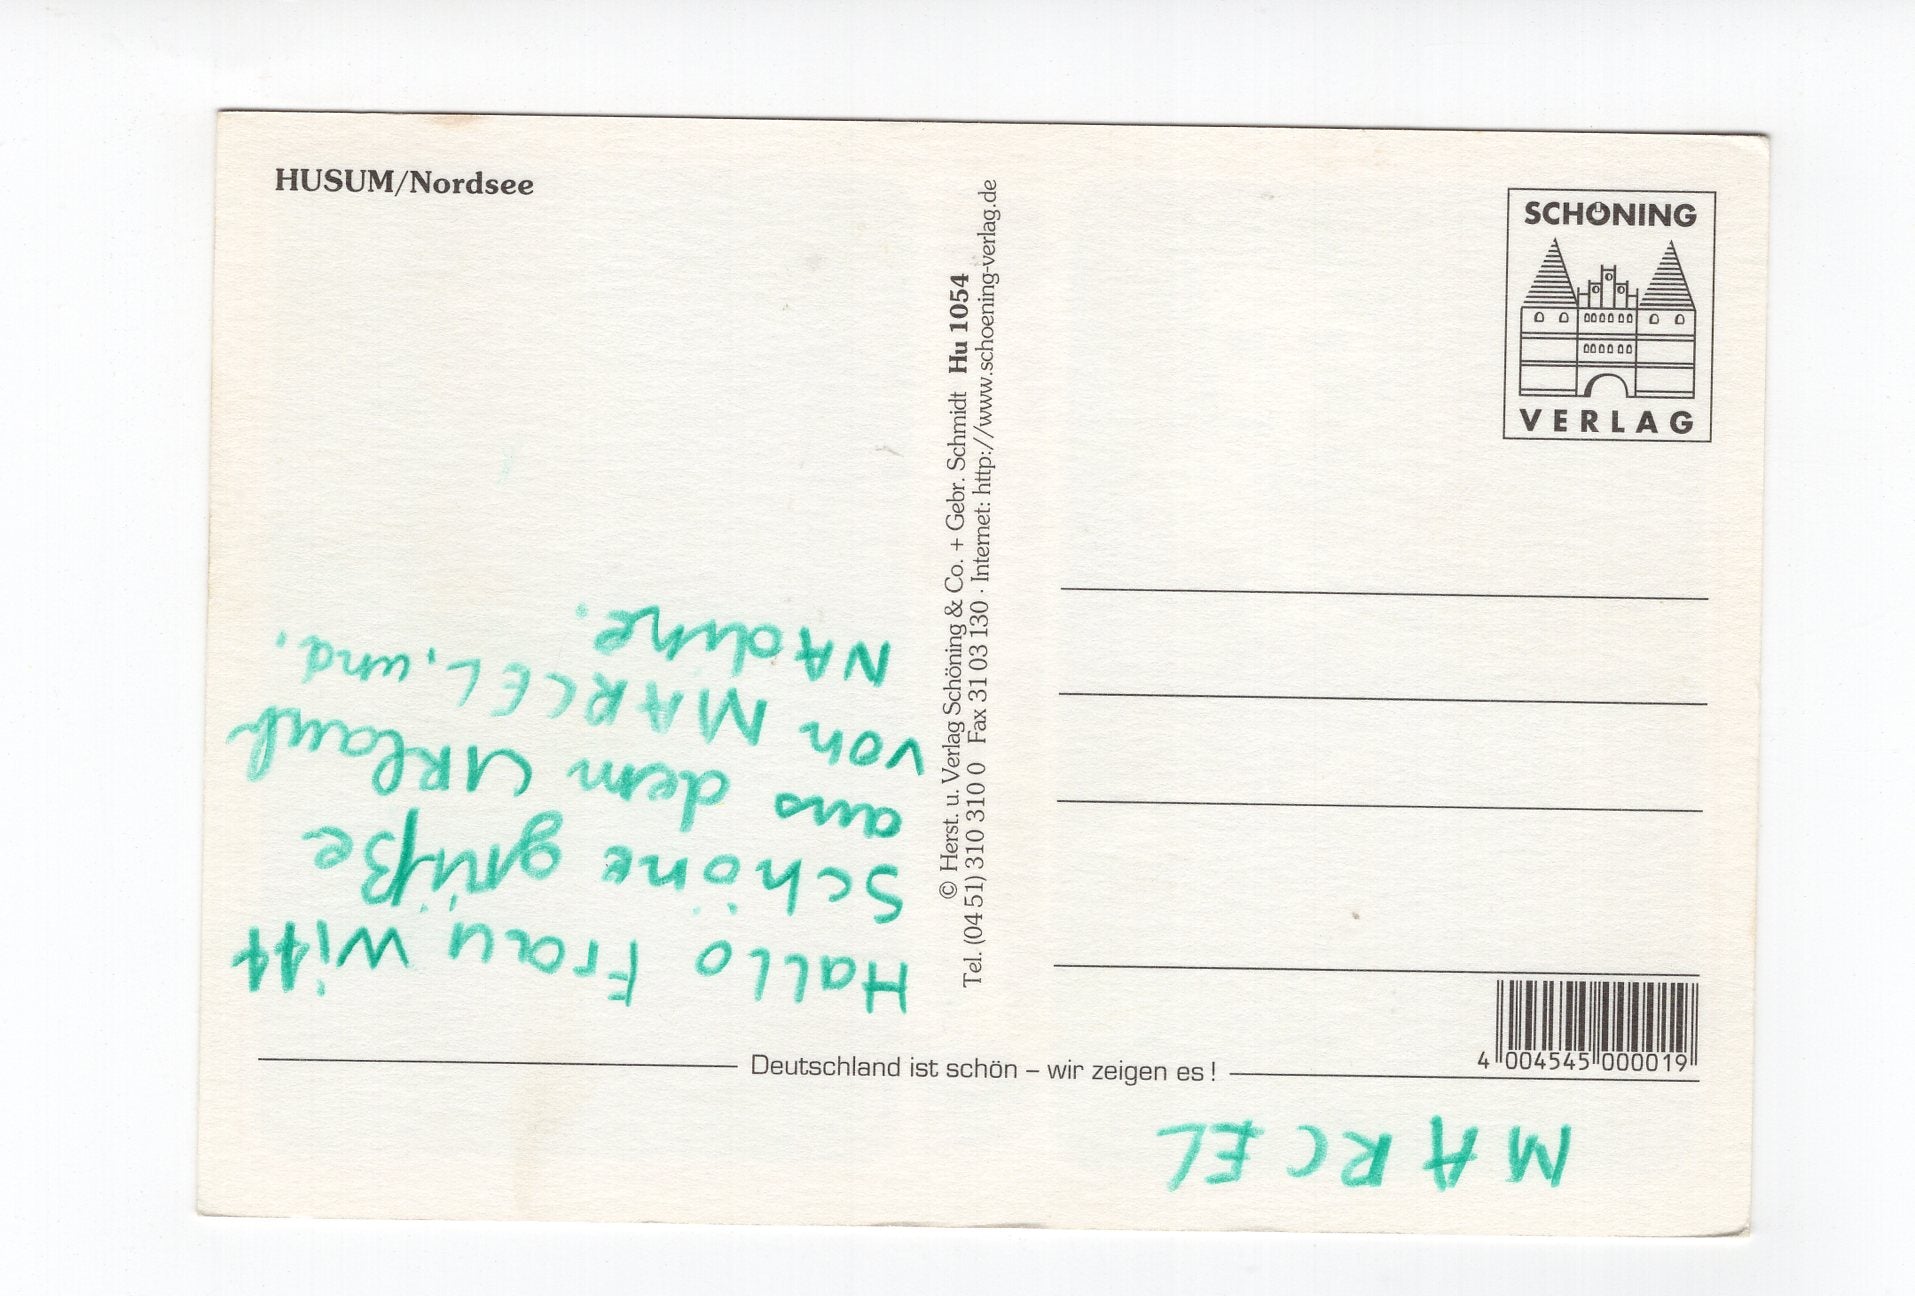 HUSUM/Nordsee
Hallo Frau Witt
Schöne grüße
aus dem URlaub
von MARCEL, und,
NAdine.
© Herst. u. Verlag Schöning & Co. + Gebr. Schmidt Hu 1054
Tel. (04 51) 310 310 0 Fax 31 03 130 · Internet: http://www.schoening-verlag.de
SCHÖNING
VERLAG
4 004545 000019
Deutschland ist schön – wir zeigen es !
MARCEL